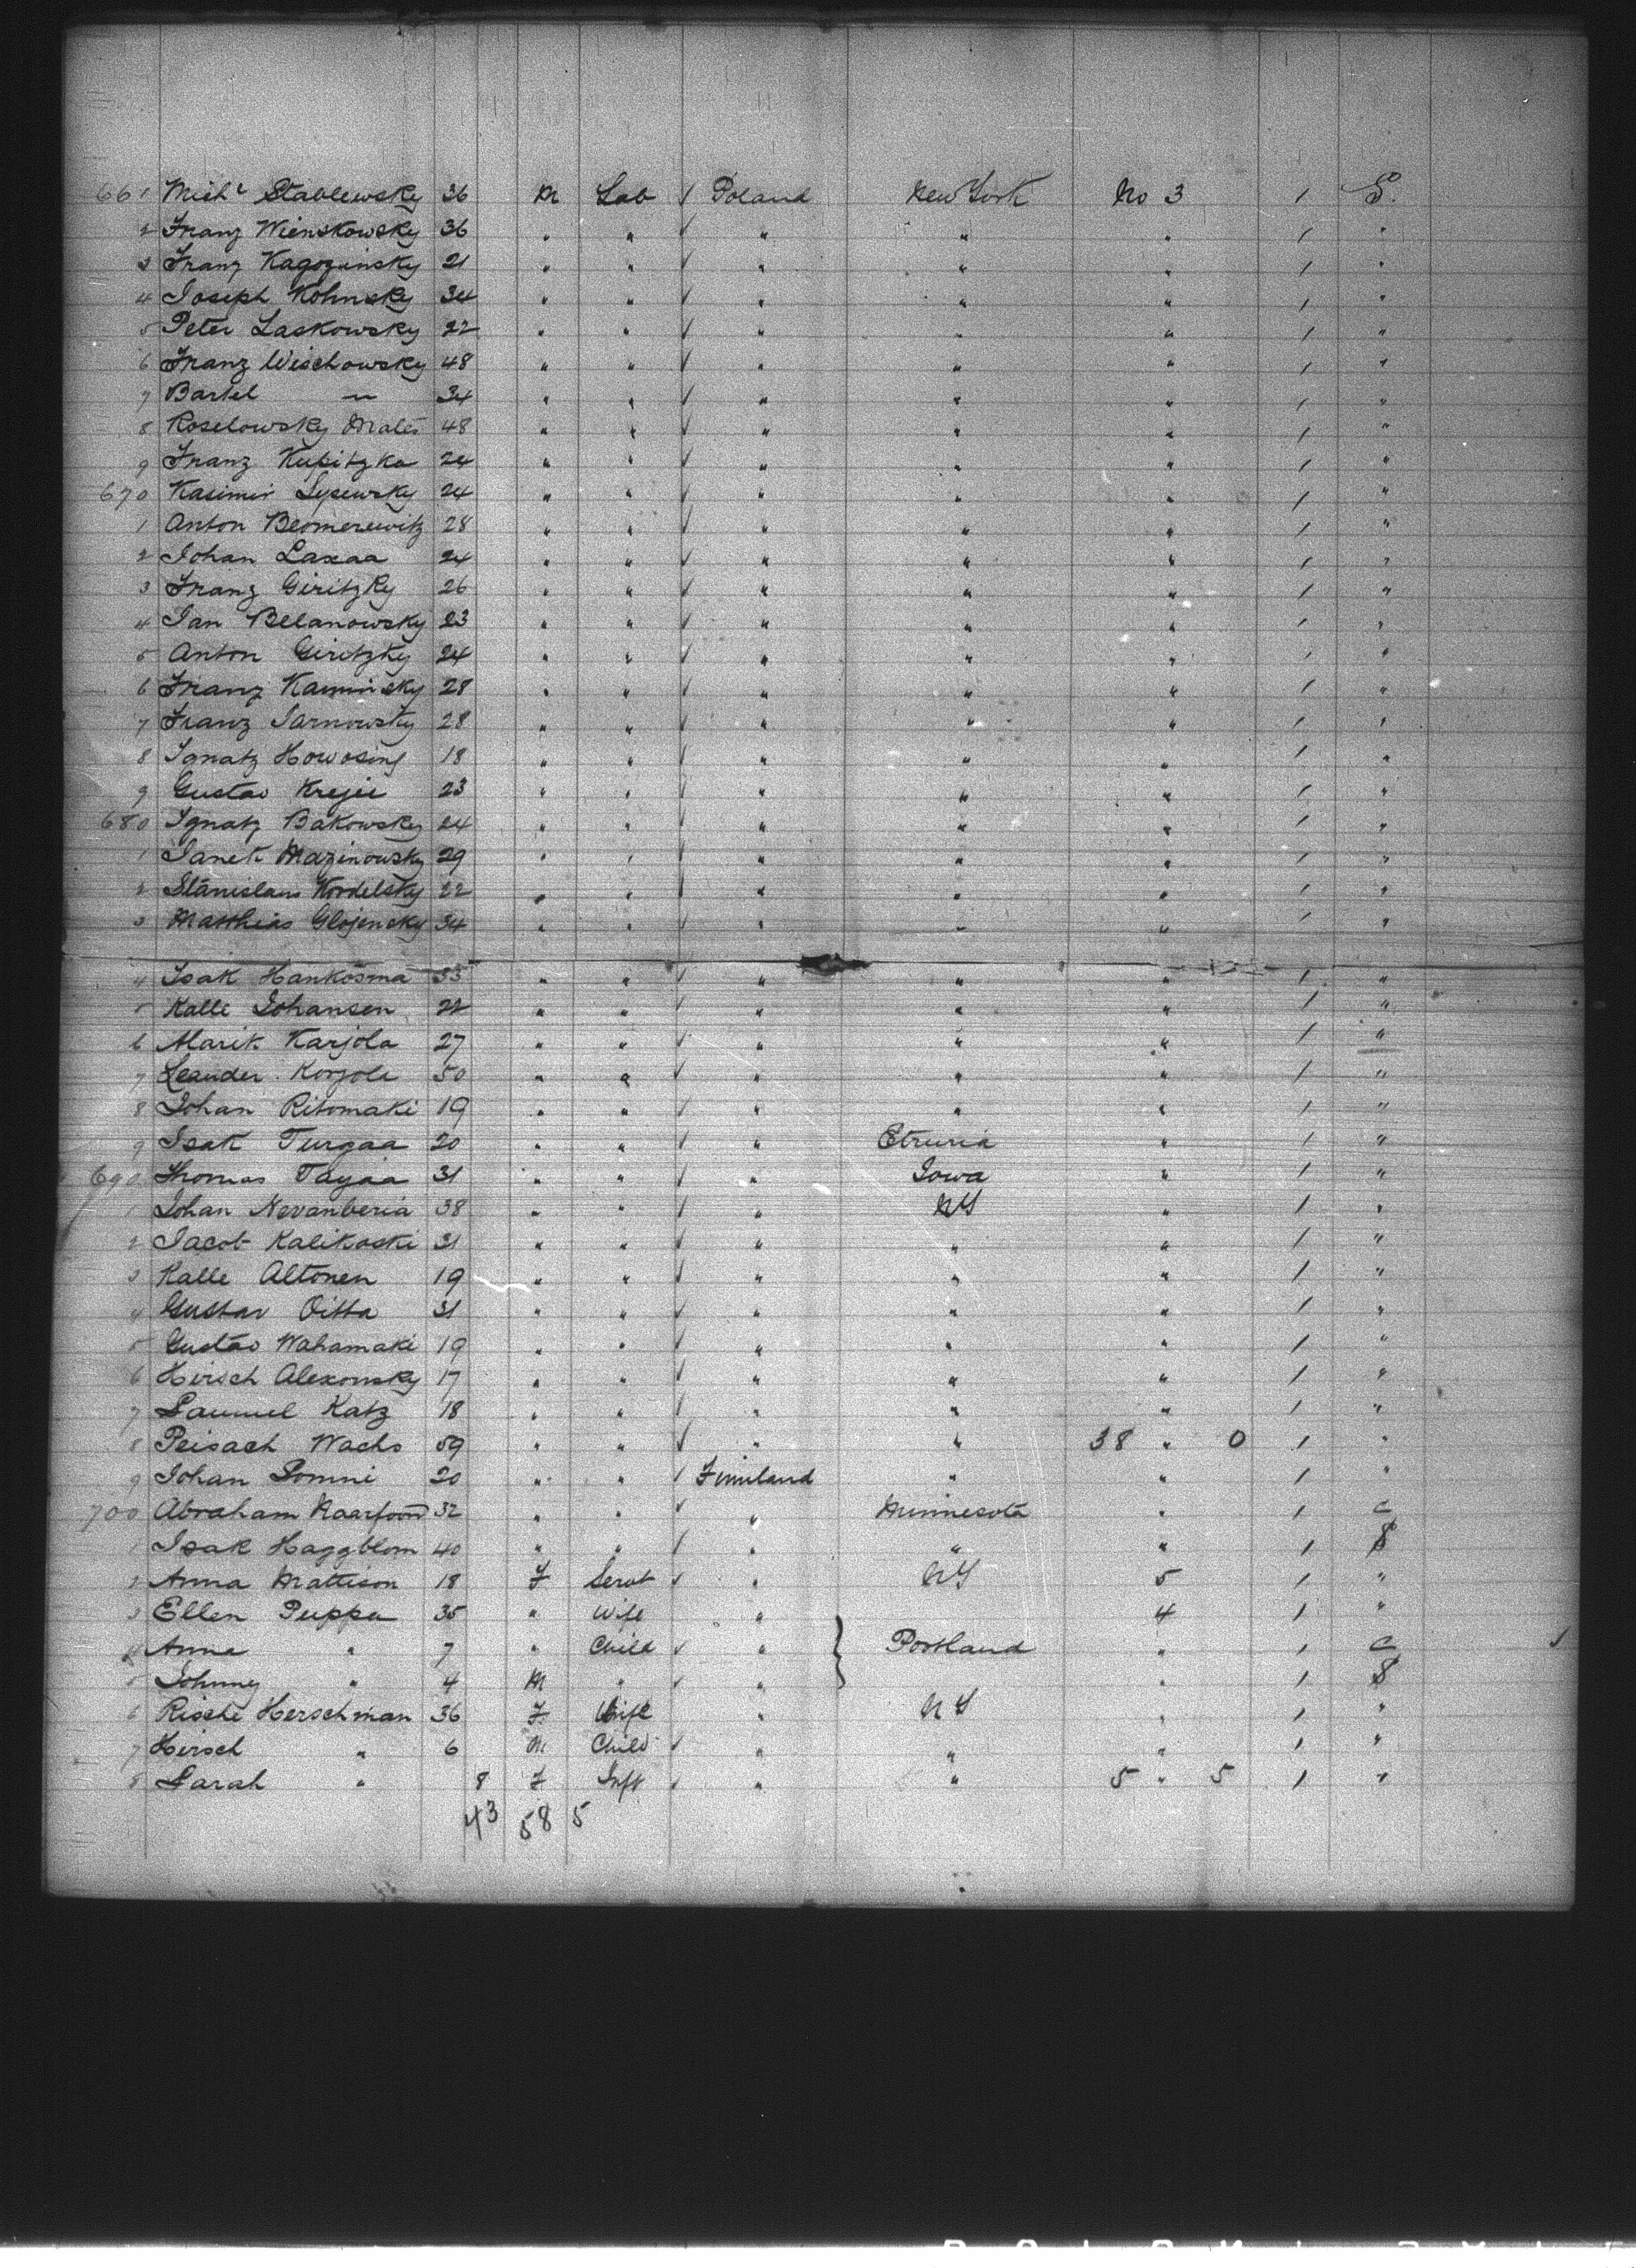 661 Mich^l Stablewsky 36 M Lab √ Poland New York No 3 1 S.
2 Franz Wienskowsky 36 " " √ " " " 1 "
3 Franz Kagozinsky 21 " " √ " " " 1 "
4 Joseph Kohnsky 34 " " √ " " " 1 "
5 Peter Laskowsky 22 " " √ " " " 1 "
6 Franz Wischowsky 48 " " √ " " " 1 "
7 Bartel " 34 " " √ " " " 1 "
8 Koselowsky Males 48 " " √ " " " 1 "
9 Franz Kupitzka 24 " " √ " " " 1 "
670 Kasimir Lysewsky 24 " " √ " " " 1 "
1 Anton Beomerewitz 28 " " √ " " " 1 "
2 Johan Laxaa 24 " " √ " " " 1 "
3 Franz Giritzky 26 " " √ " " " 1 "
4 Jan Belanowsky 23 " " √ " " " 1 "
5 Anton Giritzky 24 " " √ " " " 1 "
6 Franz Kaminsky 28 " " √ " " " 1 "
7 Franz Jarnowsky 28 " " √ " " " 1 "
8 Ignatz 18 " " √ " " " 1 "
9 Gustav Krejci 23 " " √ " " " 1 "
680 Ignatz Bakowsky 24 " " √ " " " 1 "
1 Janek Mazinowsky 29 " " √ " " " 1 "
2 Stanislaus Kordelsky 22 " " √ " " " 1 "
3 Matthias Glojensky 34 " " √ " " " 1 "
4 Isak Hankosma 33 " " √ " " " 1 "
5 Kalle Johansen 22 " " √ " " " 1 "
6 Marik Karjola 27 " " √ " " " 1 "
7 Leander Korjola 50 " " √ " " " 1 "
8 Johan Ritomaki 19 " " √ " " " 1 "
9 Isak Turgaa 20 " " √ " Etruria " 1 "
690 Thomas Tayaa 31 " " √ " Iowa " 1 "
1 Johan Nevanberia 38 " " √ " NY " 1 "
2 Jacob Kalikoski 31 " " √ " " " 1 "
3 Kalle Altonen 19 " " √ " " " 1 "
4 Gustav Oitta 31 " " √ " " " 1 "
5 Gustav Wahamaki 19 " " √ " " " 1 "
6 Hirsch Alexomsky 17 " " √ " " " 1 "
7 Samuel Katz 18 " " √ " " " 1 "
8 Peisach Wachs 59 " " √ " " 38 " 0 1 "
9 Johan Somni 20 " " √ Finnland " " 1 "
700 Abraham 32 " " √ " Minnesota " 1 C
1 Isak Haggblom 40 " " √ " " " 1 S
2 Anna Mattison 18 F Servt √ " NY 5 1 "
3 Ellen Puppa 35 " Wife " 4 1 "
4 Anna " 7 " Child √ " } Portland " 1 C √
5 Johnny " 4 M " √ " " 1 S
6 Rische Herschman 36 F. Wife " NY " 1 "
7 Hirsch " 6 M. Child √ " " " 1 "
8 Sarah " 8 F Inft √ " " 5 " 5 1 "
43 58 5